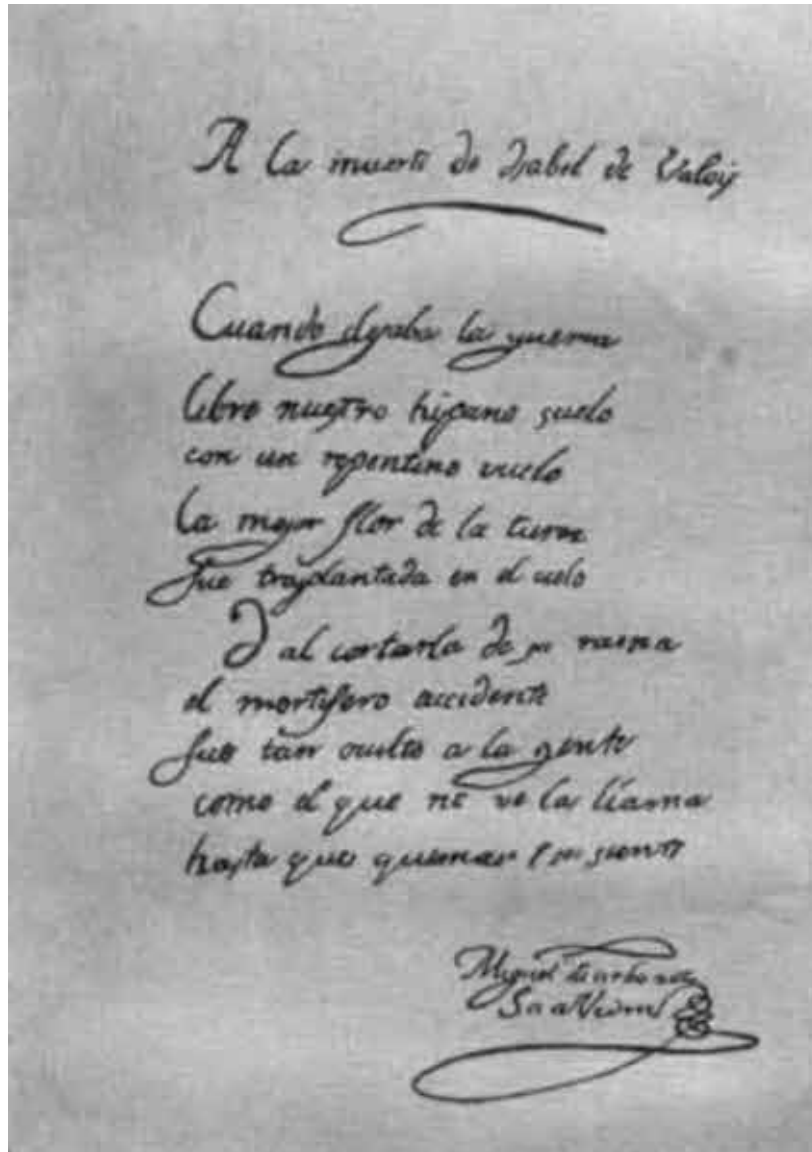 A la muerte de Isabel de Valois
Cuando dejaba la guerra
libre nuestro hispano suelo
con un repentino vuelo
la mejor flor de la tierra
fue trasplantada en el cielo
Y al cortarla de su rama
el mortifero accidente
fue tan oculto a la gente
como el que no ve la llama
hasta que quemar se siente
Miguel de
Saavedra